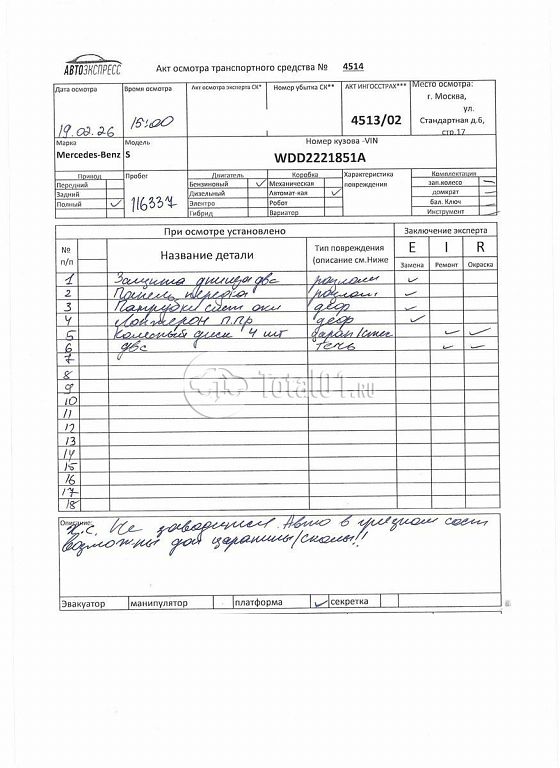 АВТОЭКСПРЕСС
Акт осмотра транспортного средства № 4514
Дата осмотра
Время осмотра
Акт осмотра эксперта СК*
Номер убытка СК**
АКТ ИНГОССТРАХ***
Место осмотра:
г. Москва,
ул.
Стандартная д.6,
стр.17
19.02.26
15:00
4513/02
Марка
Модель
Номер кузова -VIN
Mercedes-Benz
S
WDD2221851A
Привод
Пробег
Двигатель
Коробка
Характеристика
повреждения
Комплектация
Передний
Бензиновый
Механическая
зап.колесо
Задний
Дизельный
Автомат-кая
домкрат
Полный
116337
Электро
Робот
бал. Ключ
Гибрид
Вариатор
Инструмент
При осмотре установлено
Заключение эксперта
№
п/п
Название детали
Тип повреждения
(описание см.Ниже
E I R
Замена Ремонт Окраска
1 Защита днища двс разлом
2 Панель передка разлом
3 Патрубки сист охл деф
4 Лонжерон п.пр деф
5 Колесный диск 4 шт царап/
6 двс течь
7
8
9
10
11
12
13
14
15
16
17
18
Total01.ru
Описание:
Не заводится. Авто в грязном сост
возможны доп царапины/сколы!!
Эвакуатор манипулятор платформа секретка